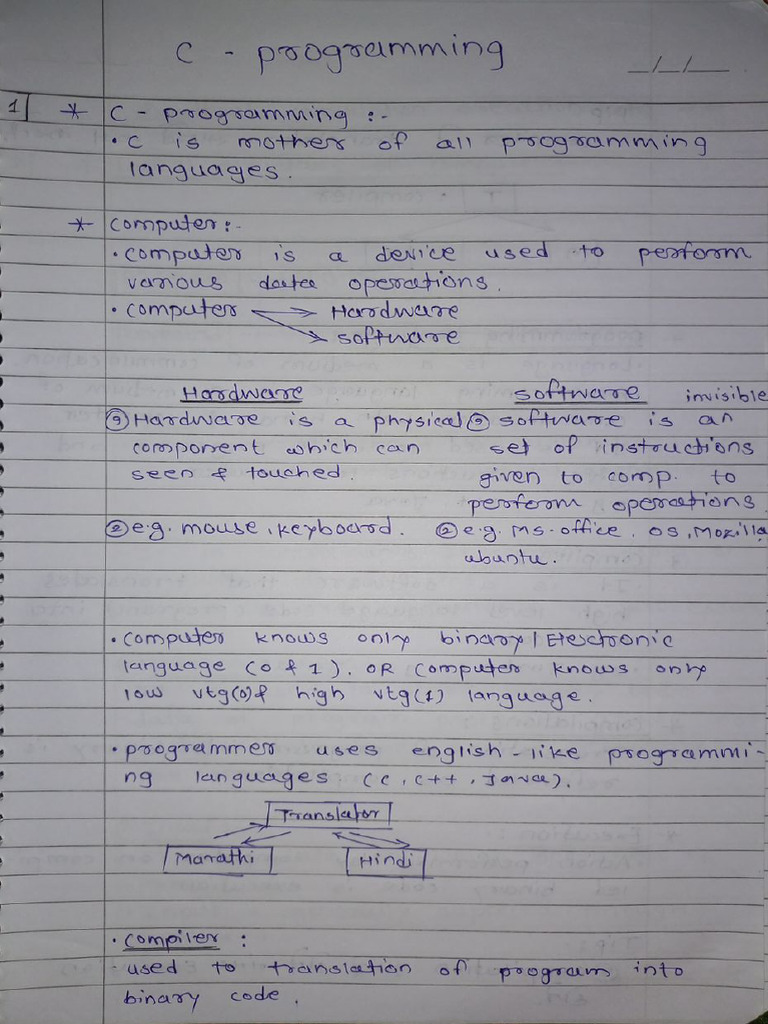 C - programming
_/_/__
1] * C - programming :-
• C is mother of all programming
languages.
* Computer :-
• Computer is a device used to perform
various data operations.
• Computer → Hardware
→ software
Hardware software invisible
① Hardware is a physical ① software is an
component which can set of instructions
seen & touched. given to comp. to
perform operations
② e.g. mouse, keyboard. ② e.g. MS-office, OS, Mozilla
ubuntu.
• Computer knows only binary / Electronic
language (0 & 1). OR Computer knows only
low vtg(0) & high vtg(1) language.
• programmer uses english-like programmi-
ng languages (C, C++, Java).
Translator
Marathi Hindi
• Compiler :
- used to translation of program into
binary code.